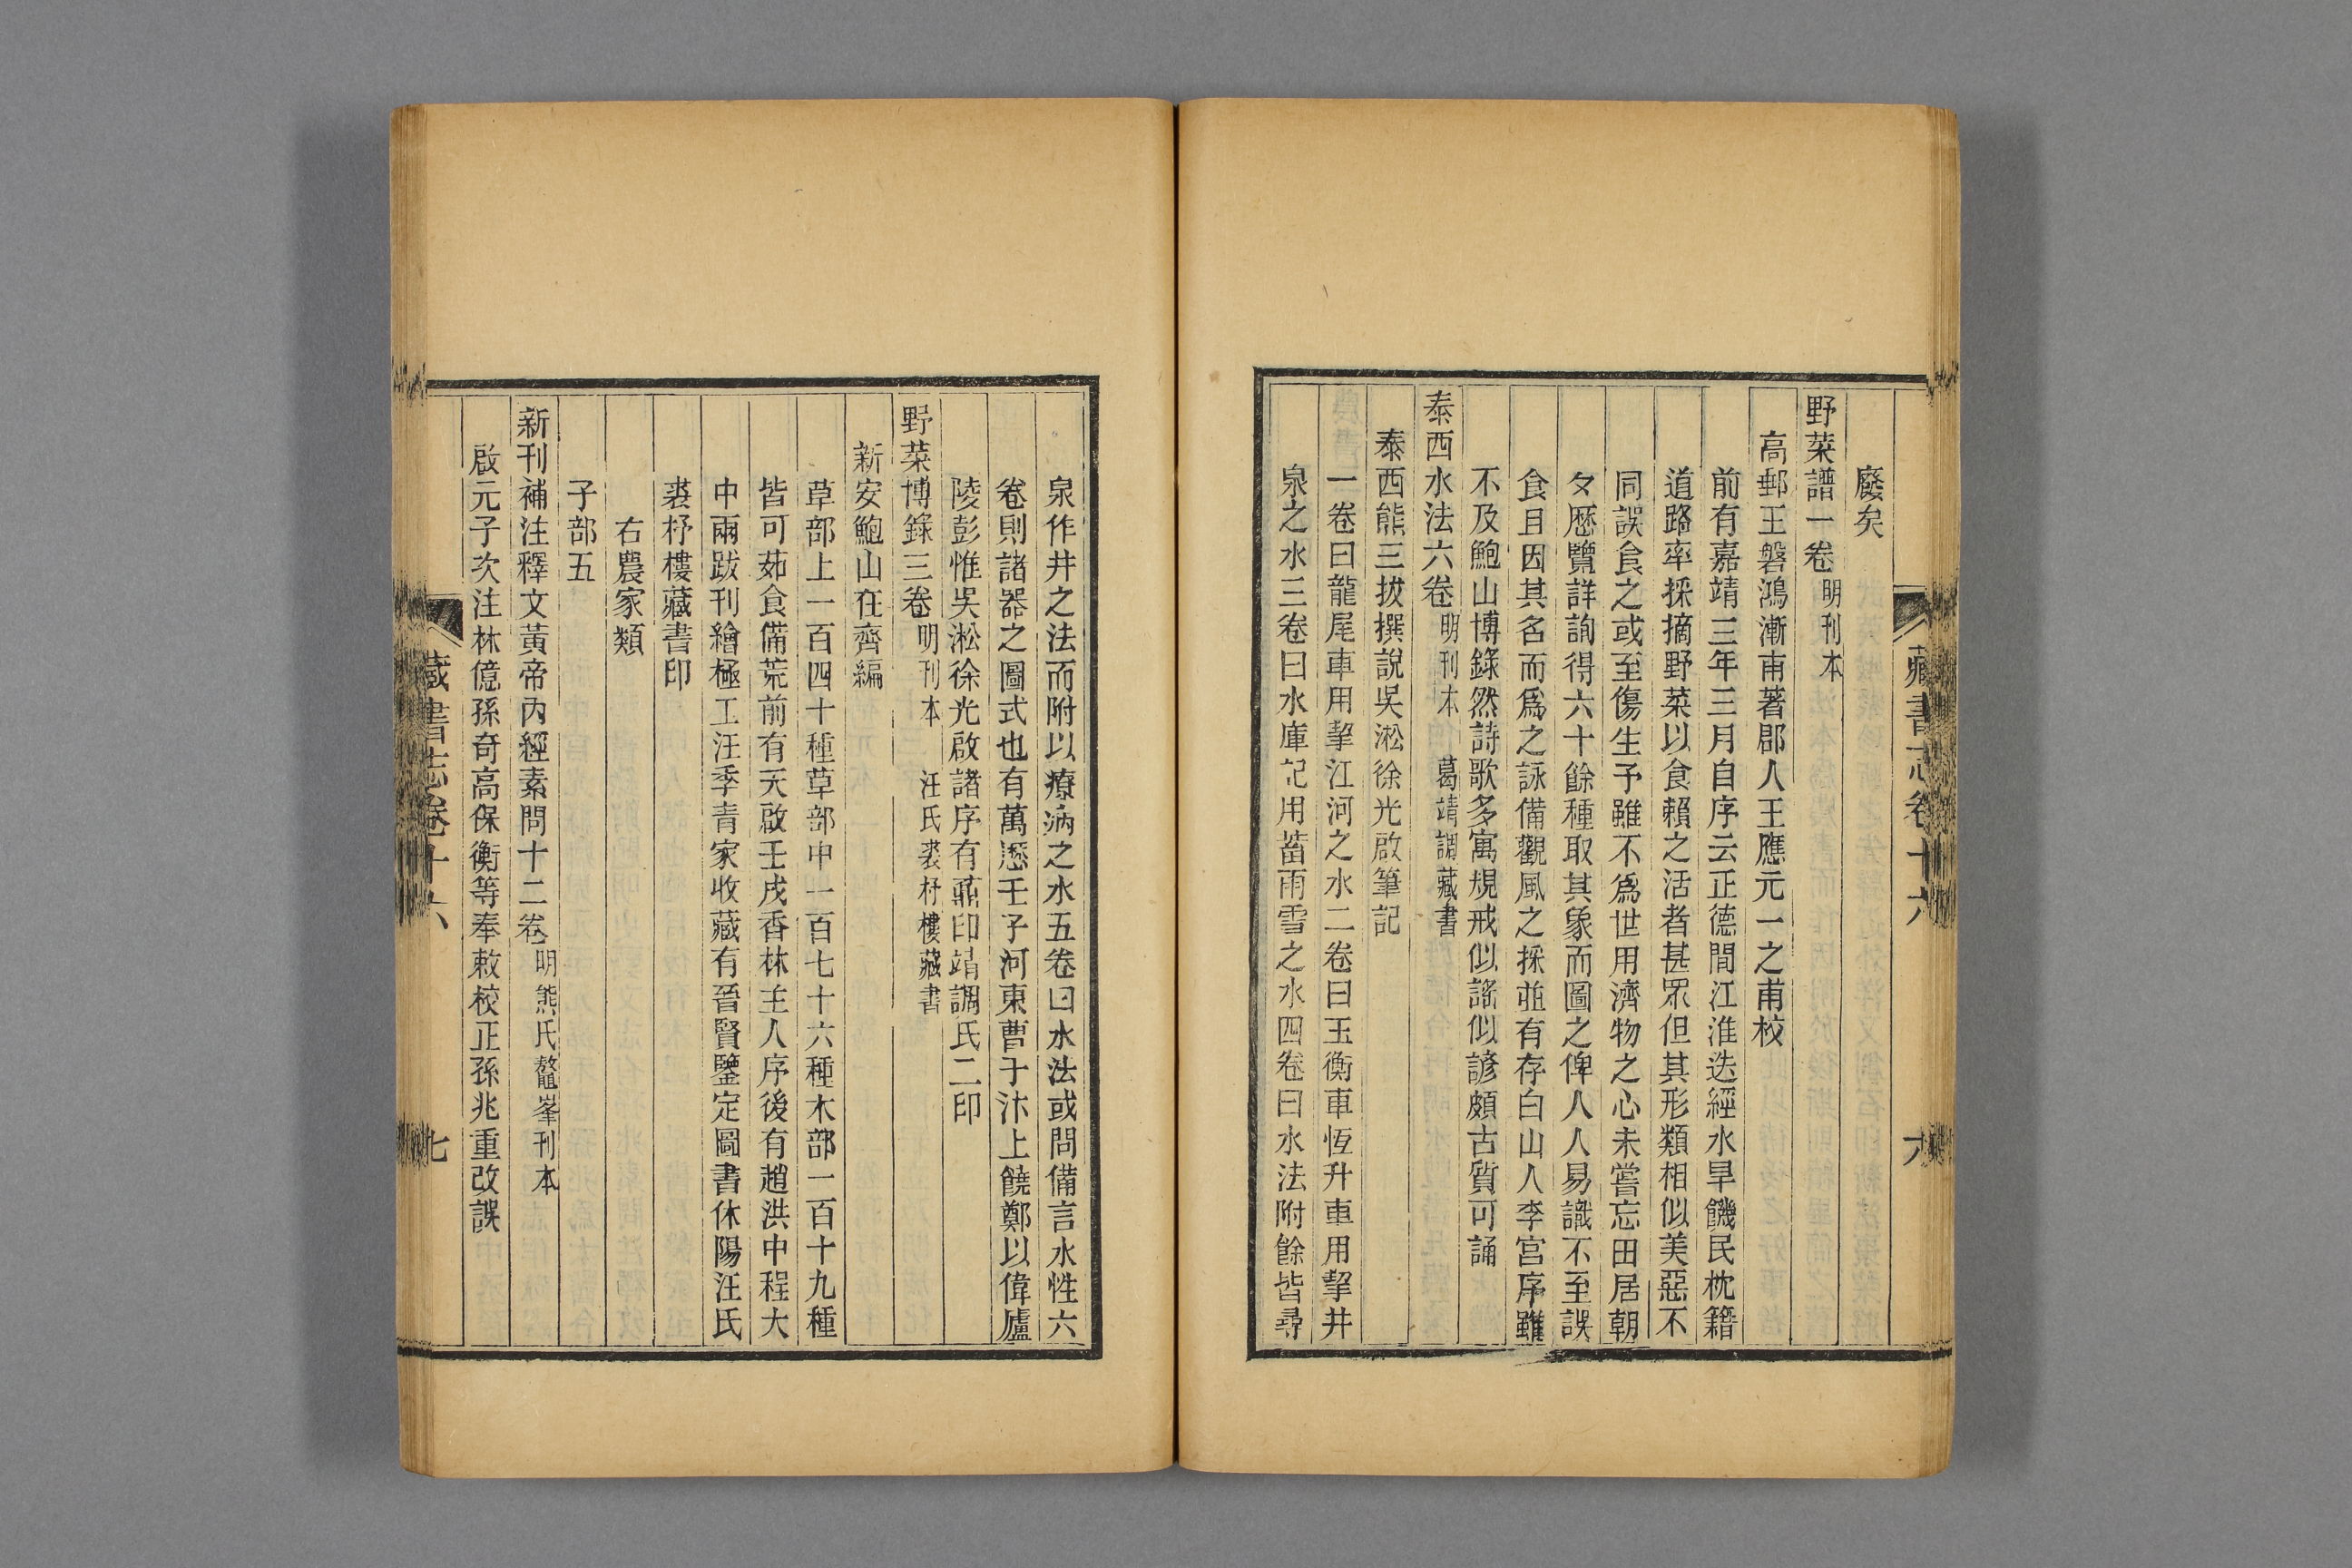 藏書志卷十六
六
廢矣
野菜譜一卷 明刊本
高郵王磐鴻漸甫著郡人王應元一之甫校
前有嘉靖三年三月自序云正德間江淮迭經水旱饑民枕籍
道路率採摘野菜以食賴之活者甚眾但其形類相似美惡不
同誤食之或至傷生予雖不爲世用濟物之心未嘗忘田居朝
夕歷覽詳詢得六十餘種取其象而圖之俾人人易識不至誤
食且因其名而爲之詠備觀風之採並有存白山人李宮序雖
不及鮑山博錄然詩歌多寓規戒似謠似諺頗古質可誦
泰西水法六卷 明刊本 葛靖調藏書
泰西熊三拔撰說吳淞徐光啟筆記
一卷曰龍尾車用挈江河之水二卷曰玉衡車恆升車用挈井
泉之水三卷曰水庫記用蓄雨雪之水四卷曰水法附餘皆尋
泉作井之法而附以療病之水五卷曰水法或問備言水性六
卷則諸器之圖式也有萬懸壬子河東曹于汴上饒鄭以偉廬
陵彭惟吳淞徐光啟諸序有鼒印靖調氏二印
野菜博錄三卷 明刊本 汪氏裘杼樓藏書
新安鮑山在齊編
草部上一百四十種草部中一百七十六種木部一百十九種
皆可茹食備荒前有天啟壬戌香林主人序後有趙洪中程大
中兩跋刊繪極工汪季青家收藏有晉賢鑒定圖書休陽汪氏
裘杼樓藏書印
右農家類
子部五
新刊補注釋文黃帝內經素問十二卷 明熊氏鼇峯刊本
啟元子次注林億孫奇高保衡等奉敕校正孫兆重改誤
藏書志卷十六
七